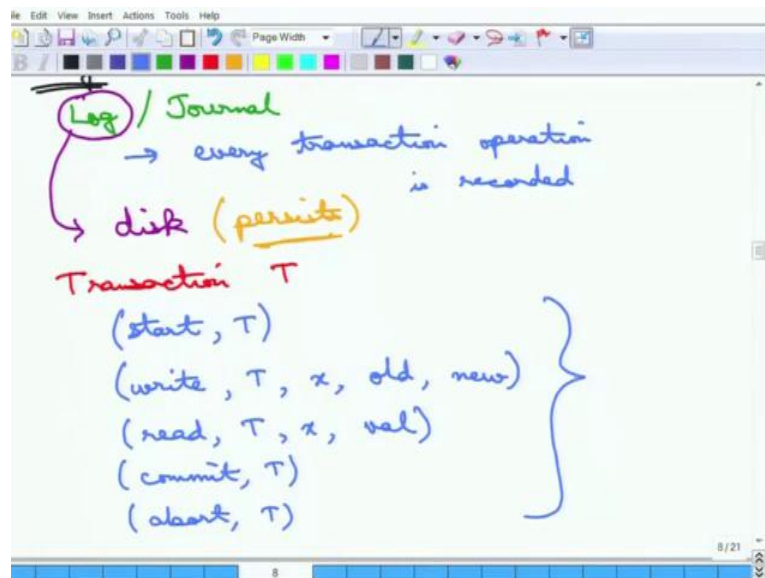 File Edit View Insert Actions Tools Help
Page Width
B I
Log / Journal
→ every transaction operation
is recorded
disk (persists)
Transaction T
(start, T)
(write, T, x, old, new)
(read, T, x, val)
(commit, T)
(abort, T)
8/21
8